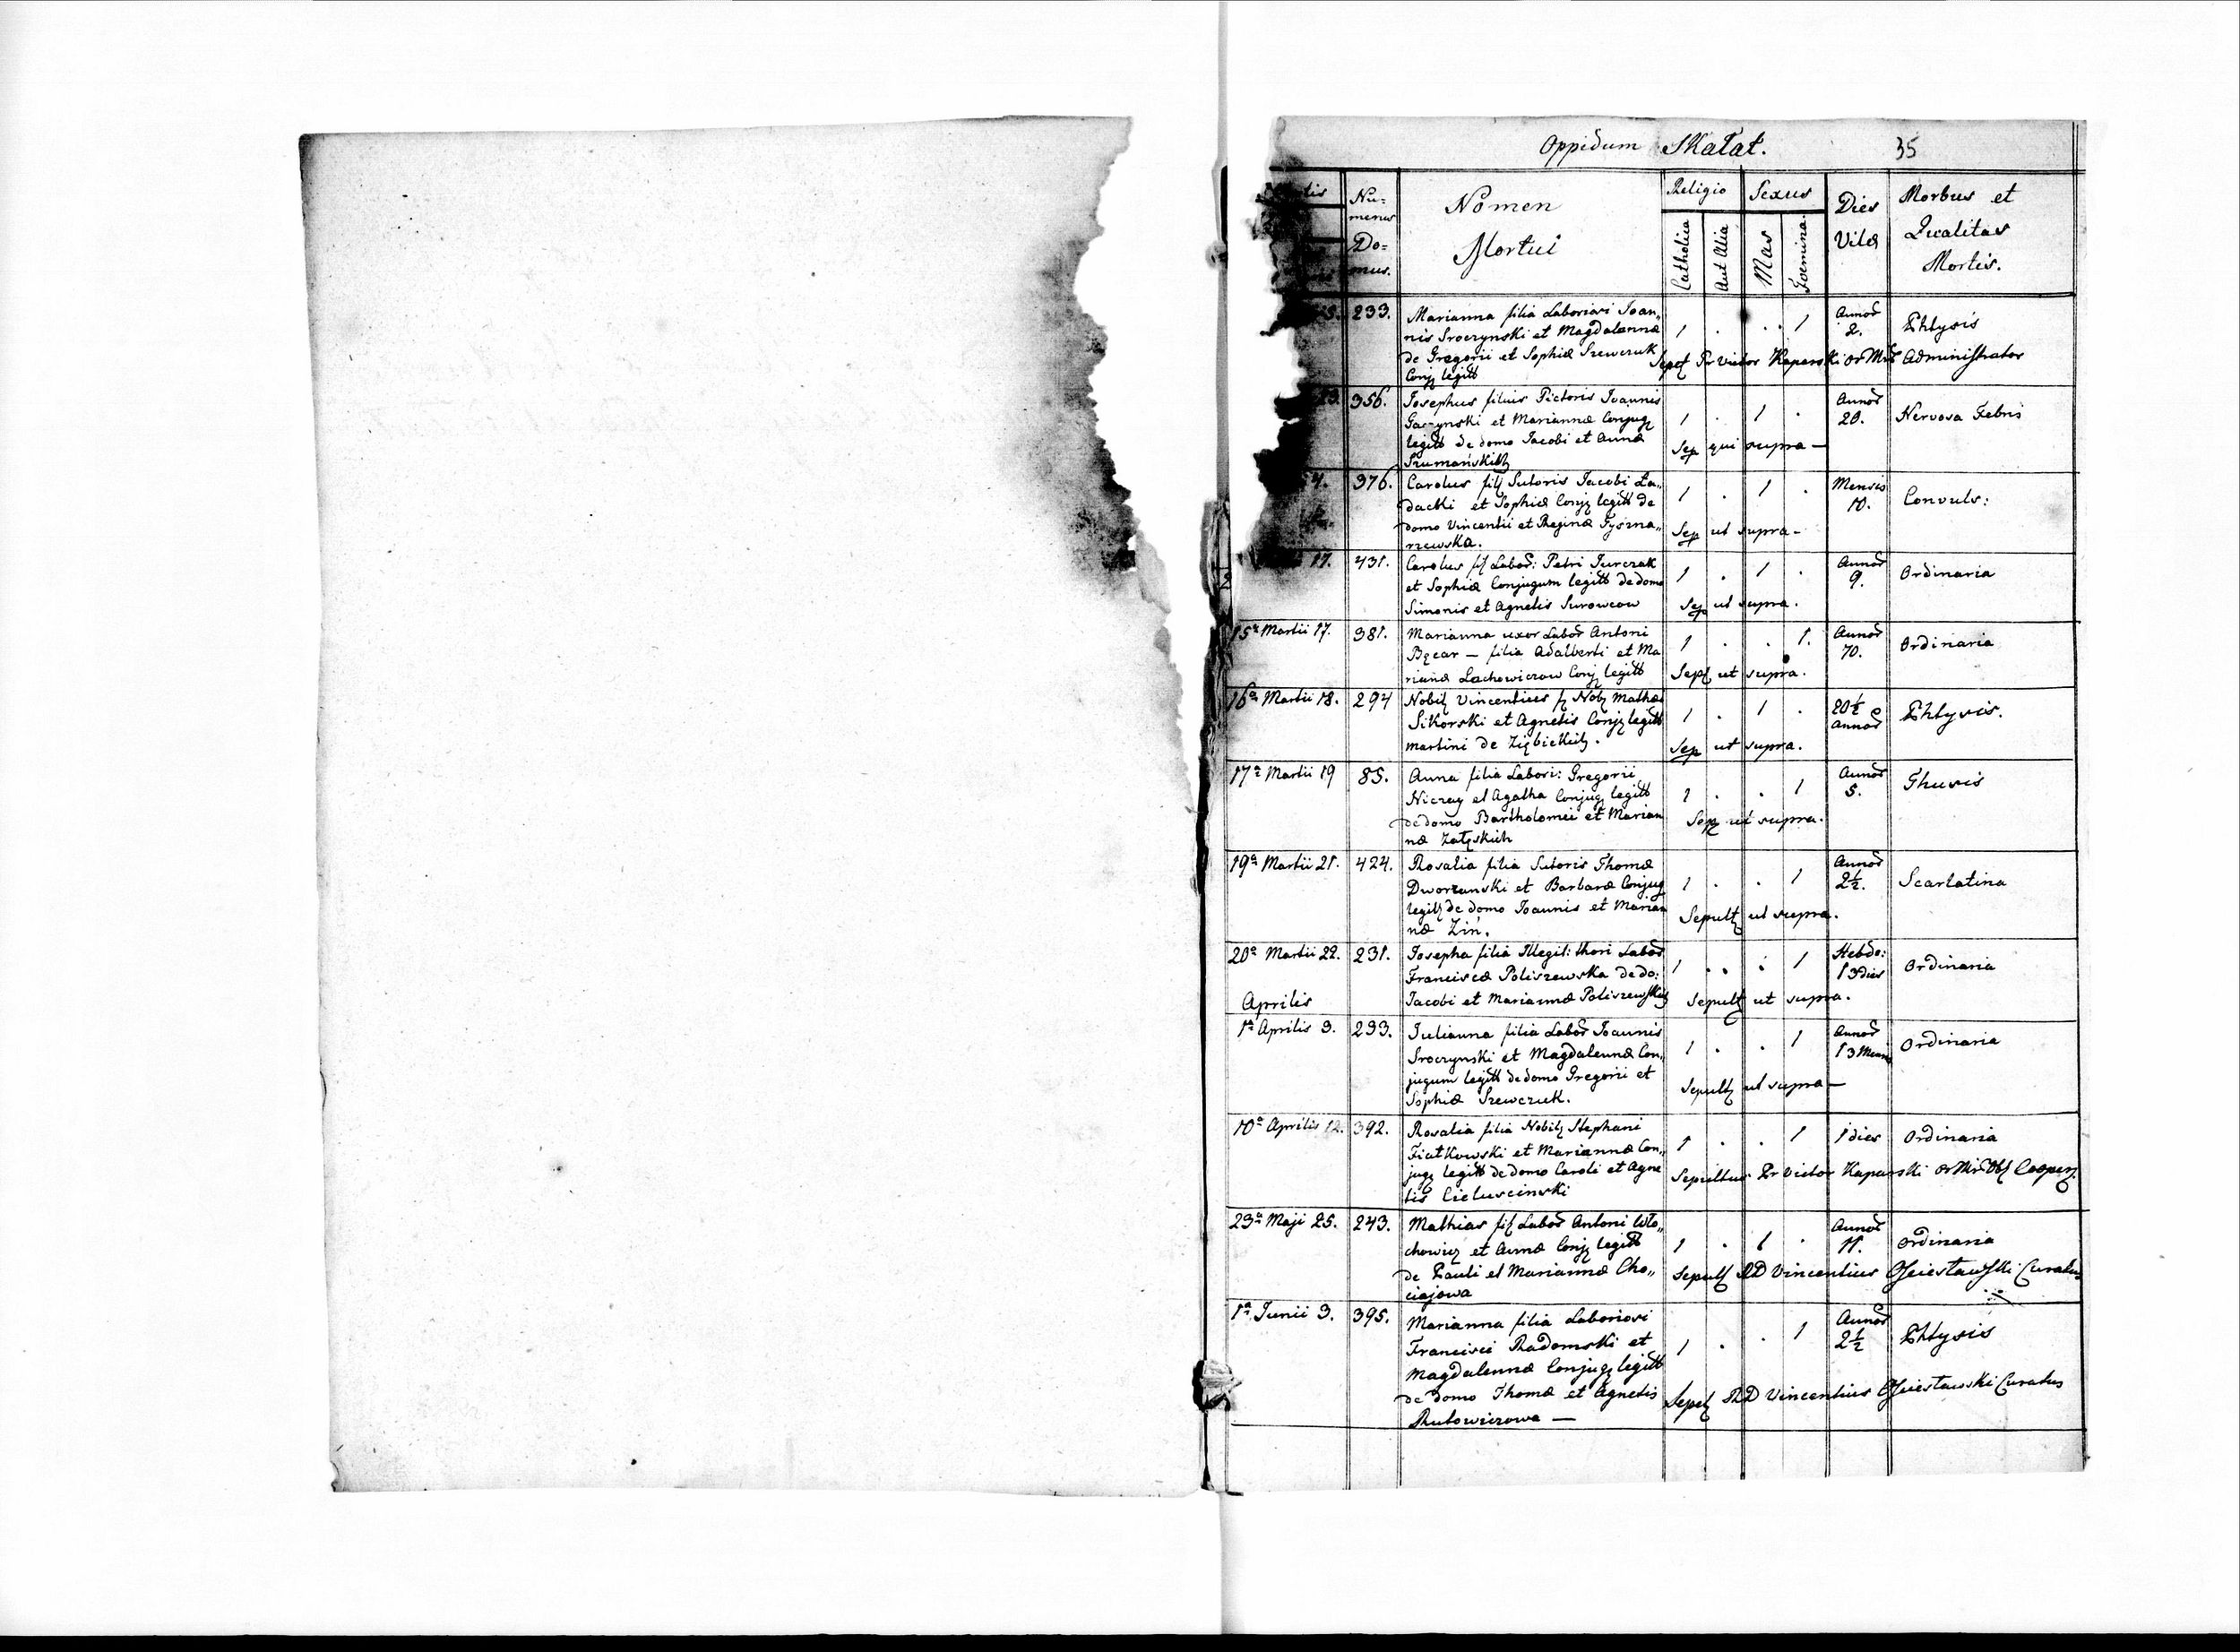 Oppidum Skałat. 35
Nu=
merus
Do=
mus.
Nomen
Mortui
Religio
Catholica
Aut Alia
Sexus
Mas
Foemina
Dies
Vitæ
Morbus et
Qualitas
Mortis.
5. 233. Marianna filia Laboriosi Joan„
nis Sroczynski et Magdalennæ
de Gregorii et Sophiæ Szewczuk
Conj legitt
1 . . 1
Annor
2.
Phtysis
Sepel Pr Victor Kaparski Administrator
13. 356. Josephus filius Pictoris Joannis
Gaczynski et Mariannæ Conjug
legitt de domo Jacobi et Annæ
Szumańskich
1 . 1 .
Annor
20.
Nervosa Febris
Sep qui supra —
4. 376. Carolus fil Sutoris Jacobi Ła„
dacki et Sophiæ Conj legitt de
domo Vincentii et Reginæ Tyszna„
rzewska.
1 . 1 .
Mensis
10.
Convuls:
Sep ut supra -
17. 431. Carolus f Labor: Petri Jurczak
et Sophiæ Conjugum legitt de domo
Simonis et Agnetis Surowcow
1 . 1 .
Annor
9.
Ordinaria
Sep ut supra.
15a Martii 17. 381. Marianna uxor Labor Antoni
Bęcar — filia Adalberti et Ma
riannæ Lachowiczow Conj legitt
1 . . 1.
Annor
70.
Ordinaria
Sepl ut supra.
16a Martii 18. 294 Nobil Vincentius f Nob Mathæi
Sikorski et Agnetis Conj legitt
Martini de Ziębickich.
1 . 1 .
20½
Annor
Phtysis.
Sep ut supra.
17a Martii 19 85. Anna filia Labori: Gregorii
Niczay et Agatha Conjug legitt
de domo Bartholomei et Marian
næ Załęskich
1 . . 1
Annor
5.
Thusis
Sep ut supra.
19a Martii 21. 424. Rosalia filia Sutoris Thomæ
Dworzanski et Barbaræ Conjug
legit de domo Joannis et Marian
næ Ziń.
1 . . 1
Annor
2½.
Scarlatina
Sepult ut supra.
20a Martii 22. 231. Josepha filia Illegit: thori Labor
Franciscæ Poliszewska de do:
Jacobi et Mariannæ Poliszewskich
1 . . 1
Hebdo:
1 3 dies
Ordinaria
Sepult ut supra.
Aprilis
1a Aprilis 3. 233. Julianna filia Labor Joannis
Sroczynski et Magdalennæ Con„
jugum legitt de domo Gregorii et
Sophiæ Szewczuk.
1 . . 1
Annor
1 3 Mens
Ordinaria
Sepult ut supra —
10a Aprilis 12. 392. Rosalia filia Nobil Stephani
Fiatkowski et Mariannæ Con„
jug legitt de domo Caroli et Agne
tis Cieluscinski
1 . . 1
1 dies
Ordinaria
Sepultus Pr Victor Kaparski Cooper
23a Maji 25. 243. Mathias fil Labor Antoni Wło„
chowicz et Annæ Conj legitt
de Pauli et Mariannæ Cho„
ciajowa
1 . 1 .
Annor
11.
Ordinaria
Sepult RD Vincentius Curatus
1a Junii 3. 395. Marianna filia Laboriosi
Francisci Radomski et
Magdalennæ Conjug legitt
de domo Thomæ et Agnetis
Rutowiczowa —
1 . . 1
Annor
2½
Phtysis
Sepel RD Vincentius Curatus